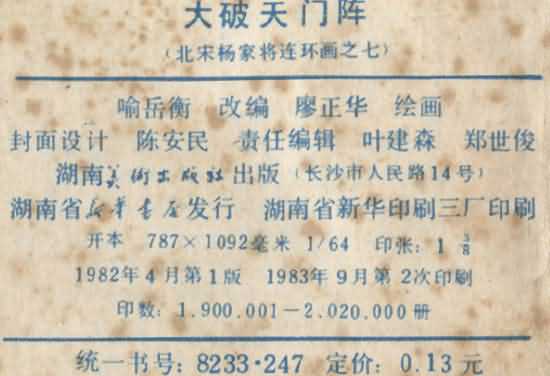 大破天门阵
(北宋杨家将连环画之七)
喻岳衡 改编 廖正华 绘画
封面设计 陈安民 责任编辑 叶建森 郑世俊
湖南美术出版社出版 (长沙市人民路14号)
湖南省新华书店发行 湖南省新华印刷三厂印刷
开本 787×1092毫米 1/64 印张: 1 3/8
1982年4月第1版 1983年9月第2次印刷
印数: 1.900.001-2.020.000册
统一书号: 8233·247 定价: 0.13元